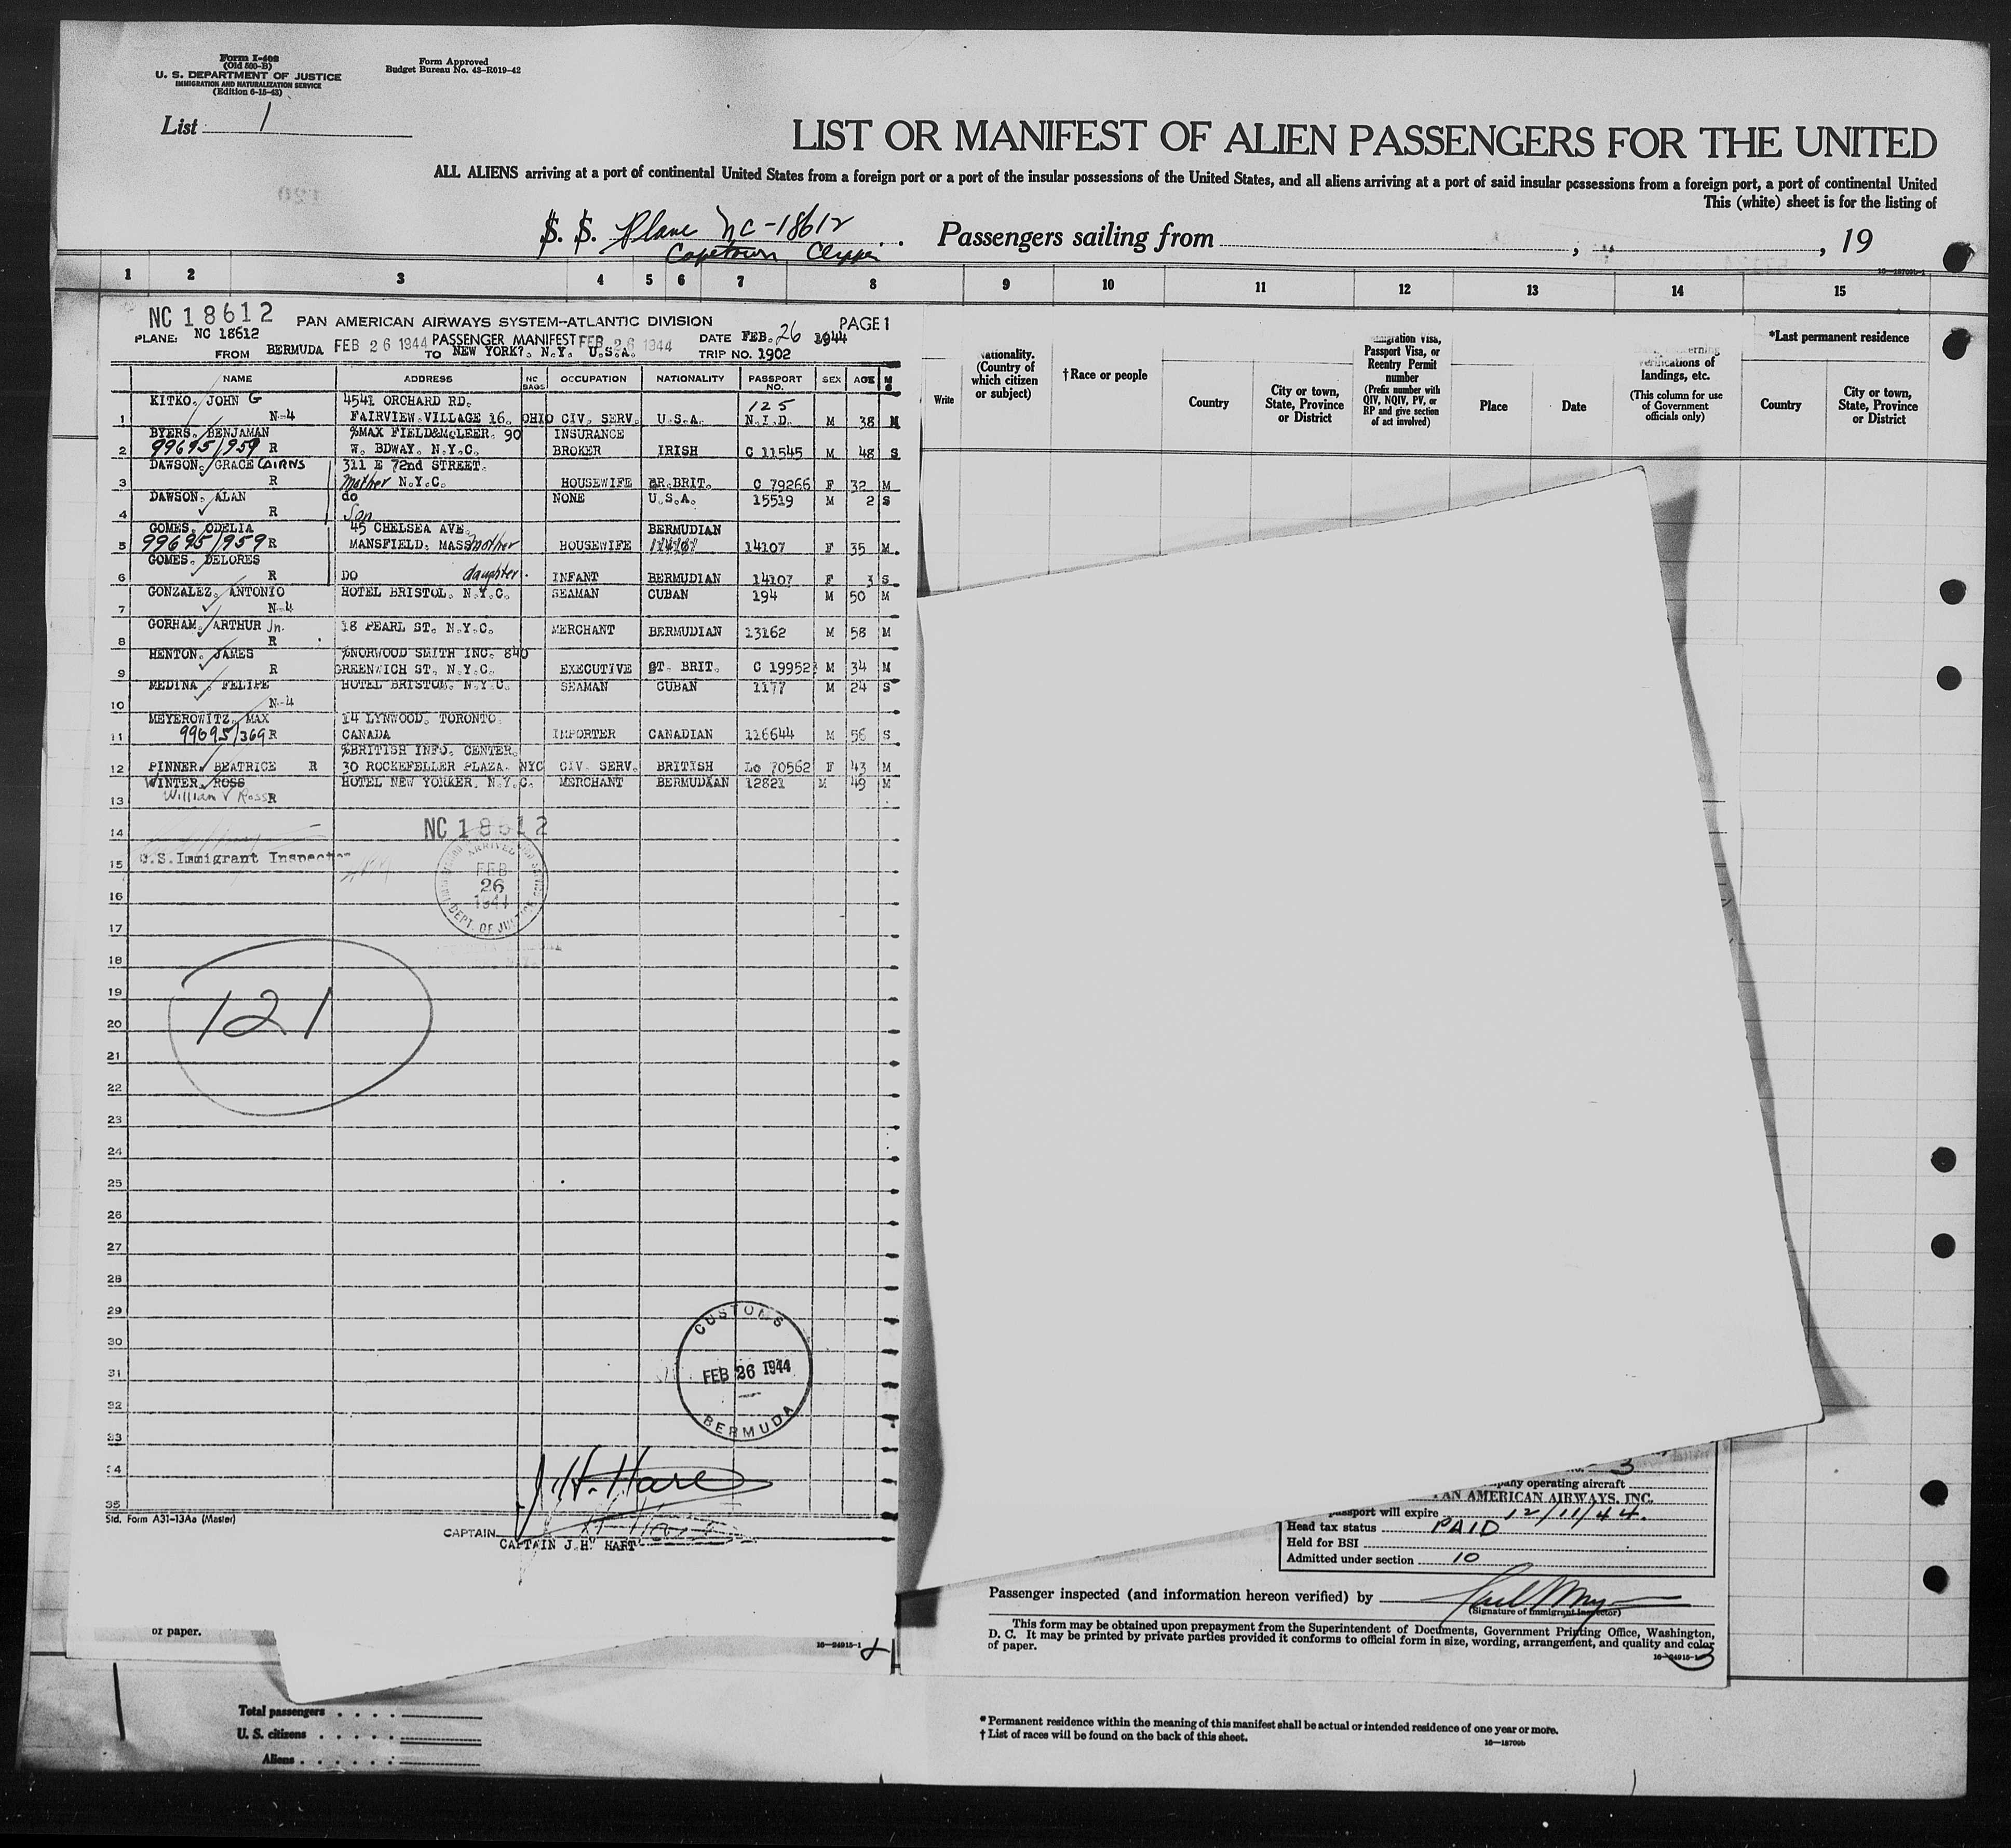 Form I-402
(Old 500-B)
U. S. DEPARTMENT OF JUSTICE
IMMIGRATION AND NATURALIZATION SERVICE
(Edition 6-15-43)
Form Approved
Budget Bureau No. 43-R019-42
List 1
LIST OR MANIFEST OF ALIEN PASSENGERS FOR THE UNITED
ALL ALIENS arriving at a port of continental United States from a foreign port or a port of the insular possessions of the United States, and all aliens arriving at a port of said insular possessions from a foreign port, a port of continental United
This (white) sheet is for the listing of
S. S. Plane NC-18612 Passengers sailing from , , 19
Capetown Clipper
1 2 3 4 5 6 7 8 9 10 11 12 13 14 15
NC 18612 PAN AMERICAN AIRWAYS SYSTEM-ATLANTIC DIVISION PAGE 1
PLANE: NC 18612 PASSENGER MANIFEST DATE FEB. 26 1944
FROM BERMUDA FEB 26 1944 TO NEW YORK?. N.Y. U.S.A. FEB 26 1944 TRIP NO. 1902
NAME ADDRESS NO. BAGS OCCUPATION NATIONALITY PASSPORT NO. SEX AGE M S
KITKO, JOHN G 4541 ORCHARD RD. 125
1 N-4 FAIRVIEW VILLAGE 16, OHIO CIV. SERV. U.S.A. N.I.D. M 38 M
BYERS, BENJAMAN %MAX FIELD&McLEER, 90 INSURANCE
2 99695/959 R W. BDWAY. N.Y.C. BROKER IRISH C 11545 M 48 S
DAWSON, GRACE CAIRNS 311 E 72nd STREET.
3 R Mother N.Y.C. HOUSEWIFE GR.BRIT. C 79266 F 32 M
DAWSON, ALAN do NONE U.S.A. 15519 M 2 S
4 R Son
GOMES, ODELIA 45 CHELSEA AVE. BERMUDIAN
5 99695/959 R MANSFIELD, MASS mother HOUSEWIFE 14107 F 35 M
GOMES, DELORES
6 R DO daughter. INFANT BERMUDIAN 14107 F 3 S
GONZALEZ, ANTONIO HOTEL BRISTOL, N.Y.C. SEAMAN CUBAN 194 M 50 M
7 N-4
GORHAM, ARTHUR Jn. 18 PEARL ST. N.Y.C. MERCHANT BERMUDIAN 13162 M 58 M
8 R
HENTON, JAMES %NORWOOD SMITH INC. 840
9 R GREENWICH ST. N.Y.C. EXECUTIVE GT. BRIT. C 19952 M 34 M
MEDINA, FELIPE HOTEL BRISTOL, N.Y.C. SEAMAN CUBAN 1177 M 24 S
10 N-4
MEYEROWITZ, MAX 14 LYNWOOD, TORONTO
11 99695/369 R CANADA IMPORTER CANADIAN 116644 M 56 S
%BRITISH INFO. CENTER,
12 PINNER, BEATRICE R 30 ROCKEFELLER PLAZA. NYC CIV. SERV. BRITISH Lo 70562 F 43 M
WINTER, ROSS HOTEL NEW YORKER, N.Y.C. MERCHANT BERMUDIAN 12821 M 49 M
13 William Ross R
14 NC 18612
15 U.S.Immigrant Inspector
ARRIVED
FEB
26
1944
DEPT. OF JUSTICE
16
17
18
19
121
20
21
22
23
24
25
26
27
28
29
30
31
32
33
34
35
CUSTOMS
FEB 26 1944
BERMUDA
J.H. Hart
Std. Form A31-13Aa (Master)
CAPTAIN
CAPTAIN J.H. HART
or paper.
16-24915-1
2
Write
Nationality. (Country of which citizen or subject)
†Race or people
Country
City or town, State, Province or District
Immigration Visa, Passport Visa, or Reentry Permit number
(Prefix number with QIV, NQIV, PV, or RP and give section of act involved)
Place
Date
verifications of landings, etc.
(This column for use of Government officials only)
*Last permanent residence
Country
City or town, State, Province or District
3
company operating aircraft
PAN AMERICAN AIRWAYS, INC.
Passport will expire 12/11/44.
Head tax status PAID
Held for BSI
Admitted under section 10
Passenger inspected (and information hereon verified) by
(Signature of Immigrant Inspector)
This form may be obtained upon prepayment from the Superintendent of Documents, Government Printing Office, Washington,
D. C. It may be printed by private parties provided it conforms to official form in size, wording, arrangement, and quality and color
of paper.
16-24915-1
3
Total passengers
U. S. citizens
Aliens
* Permanent residence within the meaning of this manifest shall be actual or intended residence of one year or more.
† List of races will be found on the back of this sheet.
16-18700b